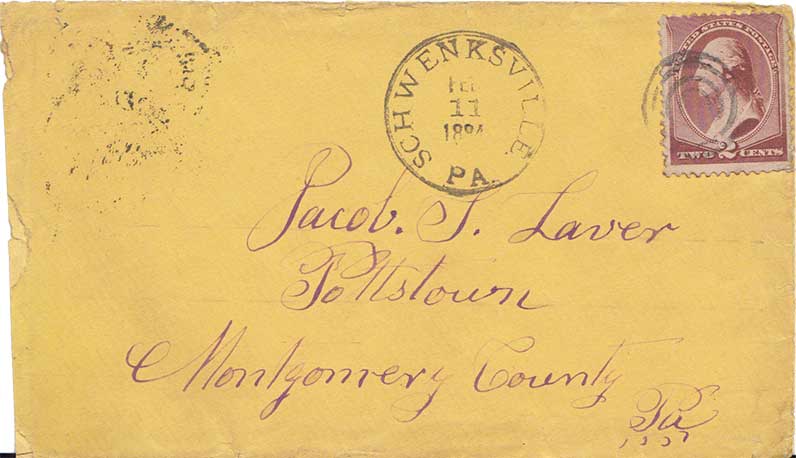 SCHWENKSVILLE
FEB
11
1884
PA.
UNITED STATES POSTAGE.
TWO 2 CENTS
Jacob. S. Laver
Pottstown
Montgomery County
Pa